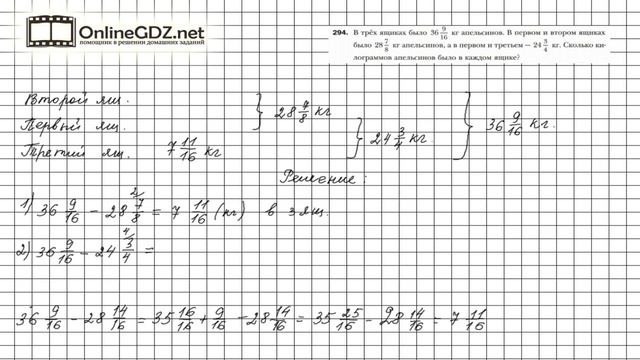 OnlineGDZ.net
помощник в решении домашних заданий
294. В трёх ящиках было 36 9/16 кг апельсинов. В первом и втором ящиках
было 28 7/8 кг апельсинов, а в первом и третьем — 24 3/4 кг. Сколько ки-
лограммов апельсинов было в каждом ящике?
Второй ящ.
Первый ящ.
Третий ящ. 7 11/16 кг
} 28 7/8 кг
} 24 3/4 кг.
} 36 9/16 кг.
Решение:
1) 36 9/16 - 28 7/8 = 7 11/16 (кг) в 3 ящ.
2) 36 9/16 - 24 3/4 =
36 9/16 - 28 14/16 = 35 16/16 + 9/16 - 28 14/16 = 35 25/16 - 28 14/16 = 7 11/16